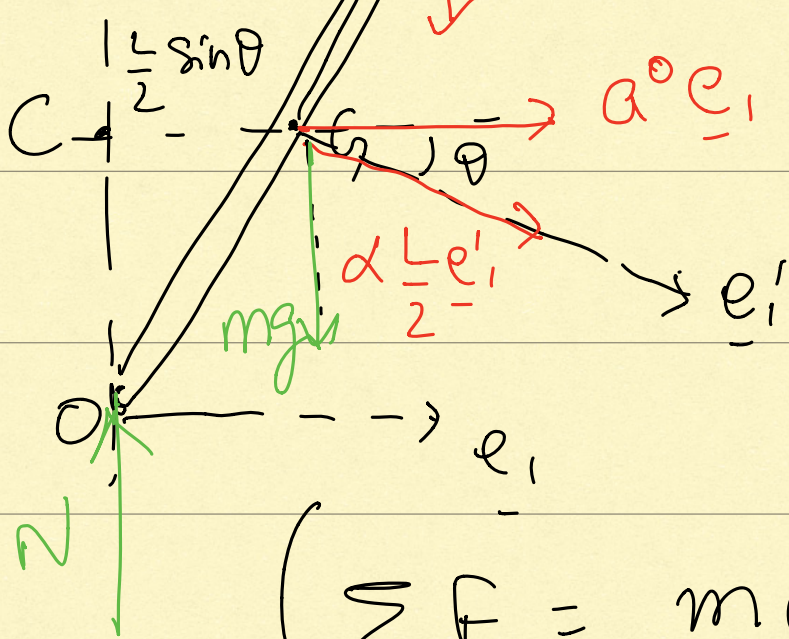 L/2 sinθ
C
G
θ
a⁰ e̲₁
α L/2 e̲'₁
e̲₁'
mg
O
e̲₁
N
( Σ F = m